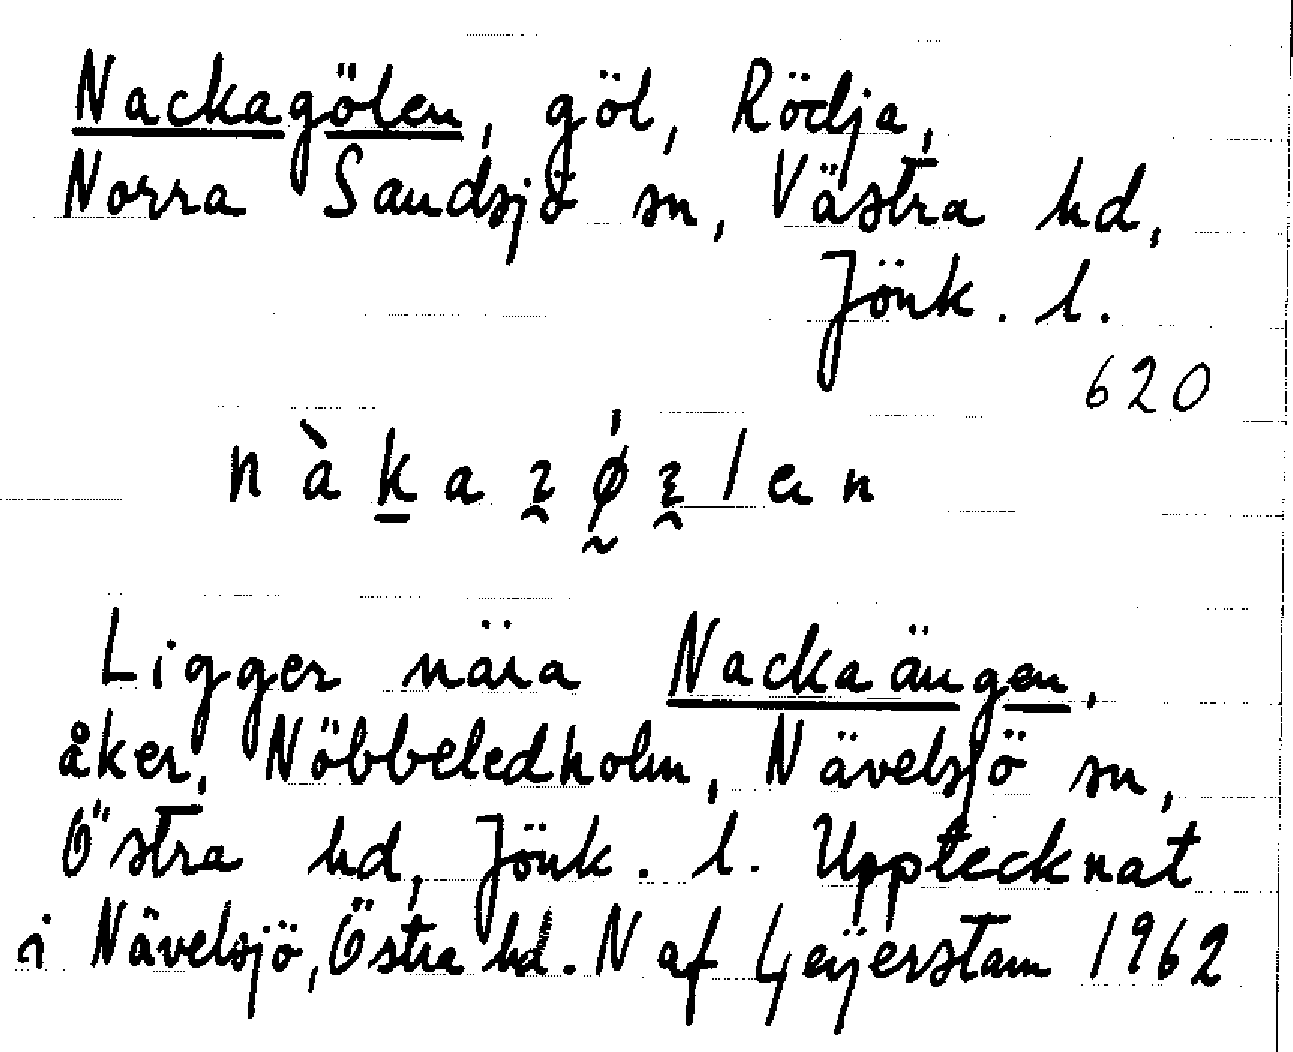 Nackagölen, göl, Rödja,
Norra Sandsjö sn, Västra hd,
Jönk. l.
620
Ligger nära Nackaängen,
åker, Nöbbeledholm, Nävelsjö sn,
Östra hd, Jönk. l. Upptecknat
i Nävelsjö, Östra hd. N af Geijerstam 1962